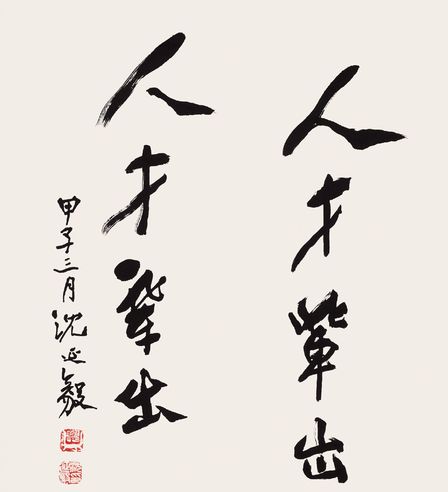 人才輩出
人才輩出
甲子三月沈延毅